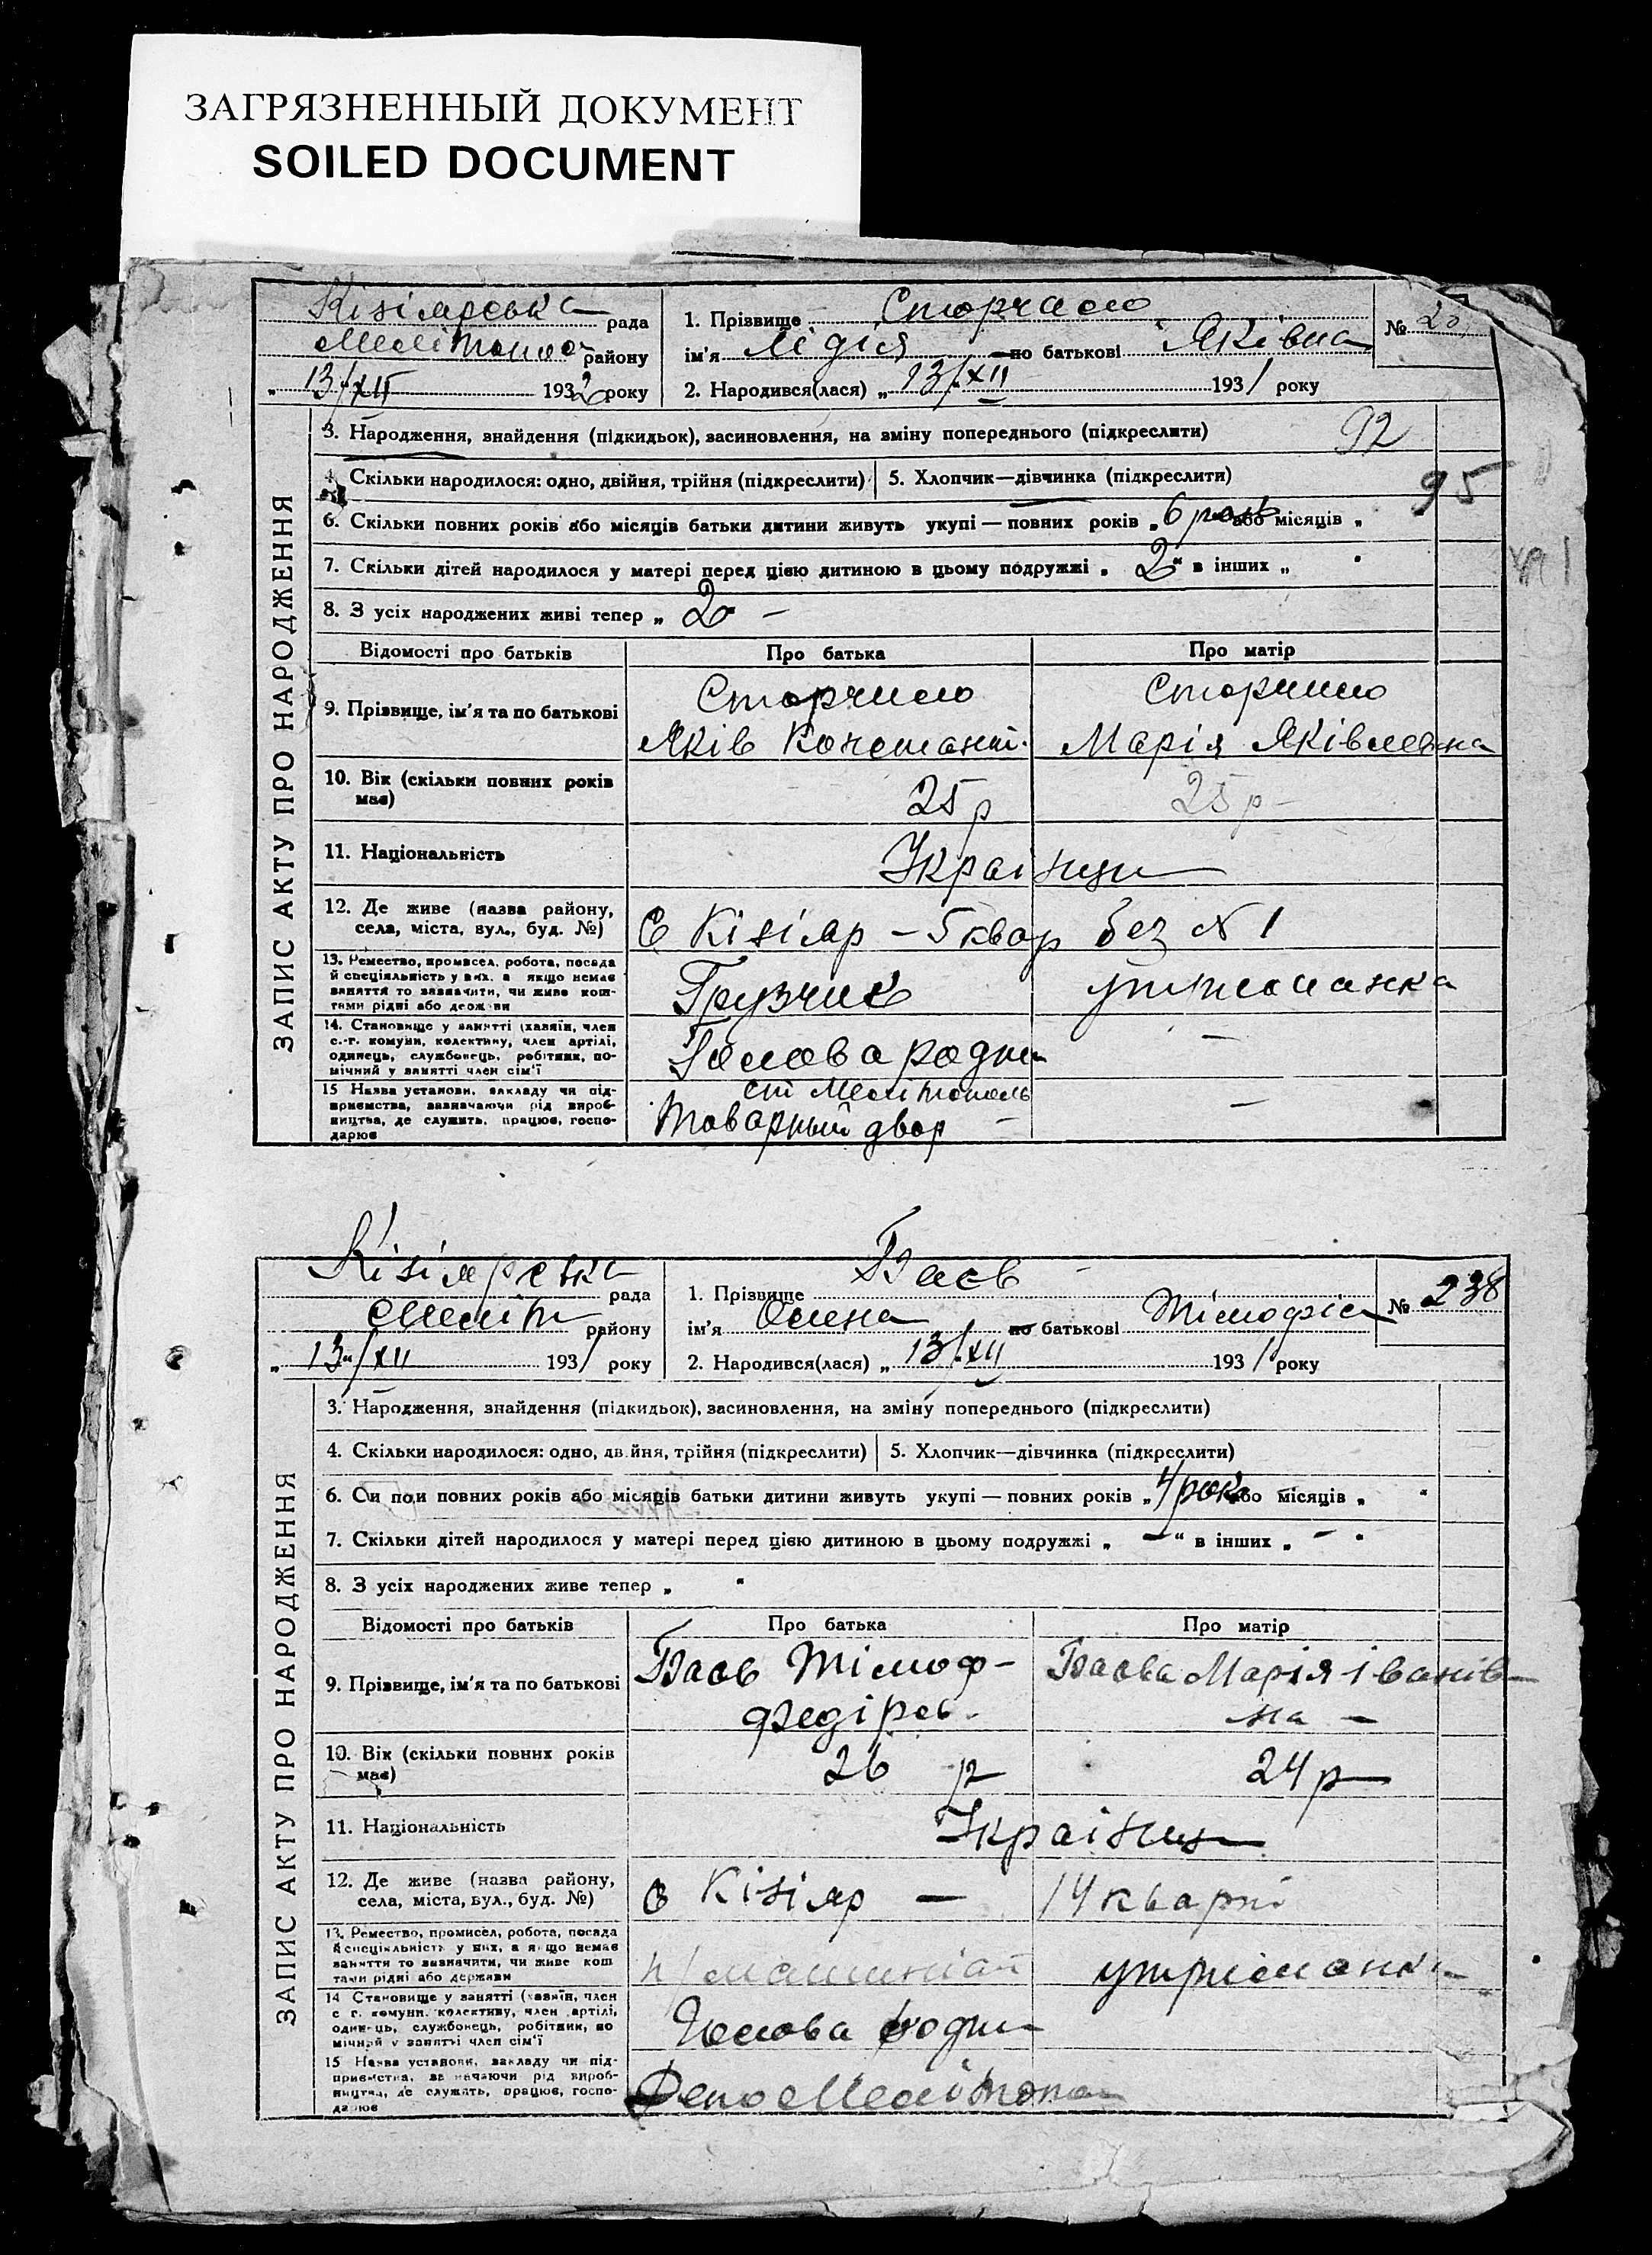 ЗАГРЯЗНЕННЫЙ ДОКУМЕНТ
SOILED DOCUMENT
ЗАПИС АКТУ ПРО НАРОДЖЕННЯ
Кізіярська рада
району
„ 13/XII 1932 року
1. Прізвище
ім'я Лідія по батькові Яківна
2. Народився(лася) „ 13/XII 1931 року
№ 23
3. Народження, знайдення (підкидьок), засиновлення, на зміну попереднього (підкреслити)
92
4. Скільки народилося: одно, двійня, трійня (підкреслити) 5. Хлопчик—дівчинка (підкреслити)
95
6. Скільки повних років або місяців батьки дитини живуть укупі — повних років „ 6 або місяців „
7. Скільки дітей народилося у матері перед цією дитиною в цьому подружжі „ 2 “ в інших „
8. З усіх народжених живі тепер „ 2 –
Відомості про батьків Про батька Про матір
9. Прізвище, ім'я та по батькові
Яків Констант. Марія Яківлевна
10. Вік (скільки повних років має) 25 р 25 р –
11. Національність Украінци
12. Де живе (назва району, села, міста, вул., буд. №) С Кізіяр – 5 квар без № 1
13. Ремество, промисел, робота, посада
й спеціяльність у них, а якщо немає
заняття то зазначити, чи живе кош-
тами рідні або держави
Грузчик утріманка
14. Становище у занятті (хазяїн, член
с.-г. комуни, колективу, член артілі,
одинець, службовець, робітник, по-
мічний у занятті член сім'ї
Голова родин –
15 Назва установи, закладу чи під-
приємства, зазначаючи рід вироб-
ництва, де служить, працює, госпо-
дарює
ст Мелітополь
товарный двор – –
ЗАПИС АКТУ ПРО НАРОДЖЕННЯ
Кізіярська рада
Меліт району
„ 13/XII 1931 року
1. Прізвище Баєв
ім'я Олена по батькові Тімофіє
2. Народився(лася) „ 13/XII 1931 року
№ 238
3. Народження, знайдення (підкидьок), засиновлення, на зміну попереднього (підкреслити)
4. Скільки народилося: одно, двійня, трійня (підкреслити) 5. Хлопчик—дівчинка (підкреслити)
6. повних років або місяців батьки дитини живуть укупі — повних років „ 4 рок або місяців „
7. Скільки дітей народилося у матері перед цією дитиною в цьому подружжі „ — “ в інших „ –
8. З усіх народжених живе тепер „
Відомості про батьків Про батька Про матір
9. Прізвище, ім'я та по батькові Баєв Тімоф- Баєва Марія Іванів-
Федіров. на –
10. Вік (скільки повних років має) 26 р 24 р
11. Національність Украінци
12. Де живе (назва району, села, міста, вул., буд. №) с Кізіяр — 14 кварт
13. Ремество, промисел, робота, посада
й спеціяльність у них, а якщо немає
заняття то зазначити, чи живе кош
тами рідні або держави
утріманка
14 Становище у занятті (хазяїн, член
с г. комуни, колективу, член артілі,
одинець, службовець, робітник, по
мічний у занятті член сім'ї
Голова родин
15 Назва установи, закладу чи під-
приємства, зазначаючи рід вироб-
ництва, де служать, працює, госпо-
дарює
Депо Мелітопол